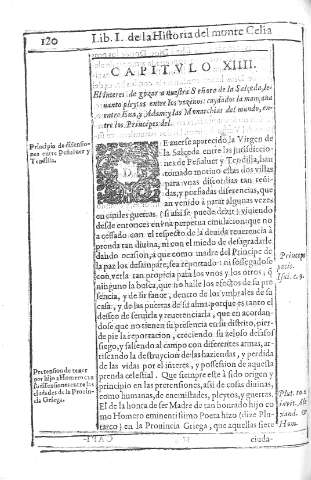 120 Lib. I. de la Historia del monte Celia
CAPITVLO XIIII.
El interes de gozar a nuestra Señora de la Salçeda, le-
uanto pleytos entre los vezinos: cuydados la mançana
entre Eua, y Adam, y las Monarchias del mundo, en-
tre los Principes del.
Principio de dissensio-
nes entre Peñaluer y
Tendilla.
D
E auerse aparecido la Virgen de
la Salçeda entre las jurisdiccio-
nes de Peñaluer y Tendilla, han
tomado motiuo estas dos villas
para vnas discordias tan reñi-
das, y porfiadas diferencias, que
an venido à parar algunas vezes
en ciuiles guerras (si assi se puede dezir) viuiendo
desde entonces en vna perpetua emulacion: que no
a cessado, con el respecto de la deuida reuerencia à
prenda tan diuina, ni con el miedo de desagradarle
dando ocasion, à que como madre del Principe de
la paz los desampare, sea reportado: ni sossegadose
con verla tan propicia para los vnos y los otros, que
ninguno la busca, que no halle los efectos de su pre-
sencia, y de su fauor, dentro de los vmbrales de su
casa, y de las puertas de su alma. porque es tanto el
desseo de seruirla y reuerenciarla, que en acordan-
dose que no tienen su presencia en su distrito, pier-
de pie la reportacion, creciendo su zeloso desasos-
siego, y saliendo al campo con diferentes armas, ar-
riscando la destruycion de las haziendas, y perdida
de las vidas por el interes, y possession de aquesta
prenda celestial. Que siempre este à sido origen y
principio en las pretensiones, assi de cosas diuinas,
como humanas, de enemistades, pleytos, y guerras.
El de la honra de ser Madre de tan honrado hijo co
mo Homero eminentissimo Poeta hizo (dize Plu-
tarco) en la Prouincia Griega, que aquellas siete
ciuda-
Princeps
pacis.
Isai. c. 9.
Pretension de tener
por hijo a Homero cau
so dissensiones entre las
ciudades de la Prouin-
cia Griega.
Plut. to. 2
Hom.